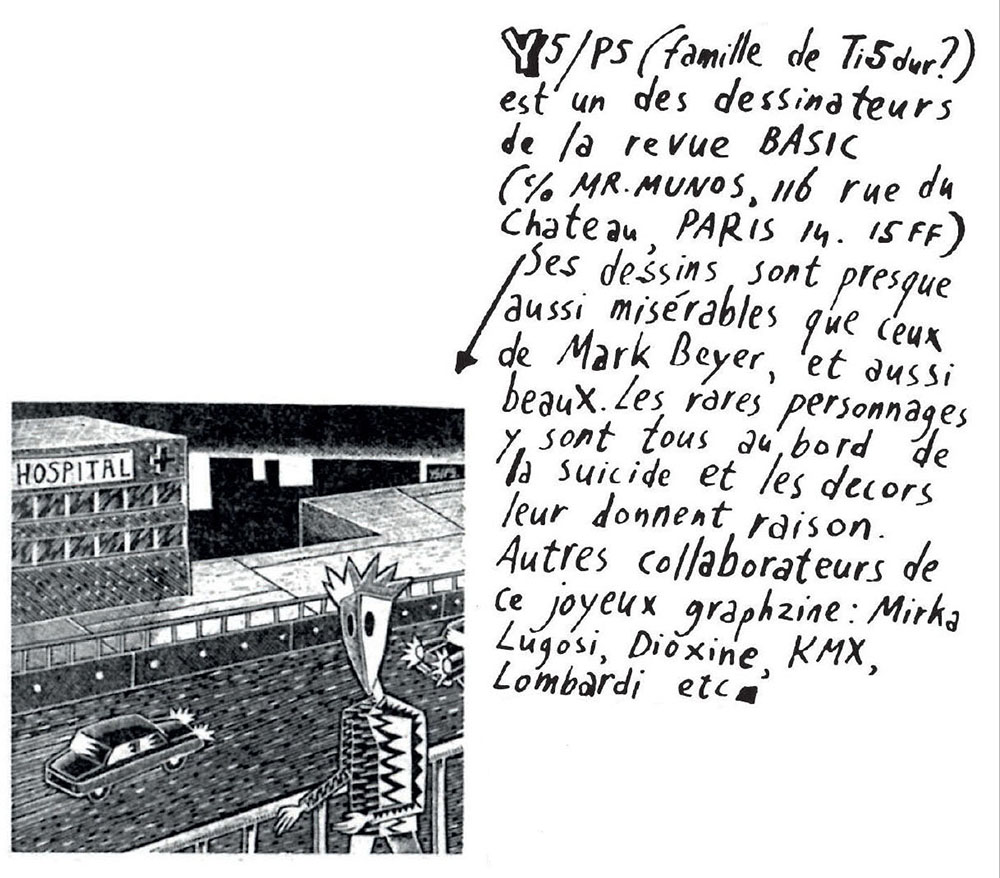 Y5/P5 (famille de Ti5dur?)
est un des dessinateurs
de la revue BASIC
(c/o MR. MUNOS, 116 rue du
Chateau, PARIS 14. 15FF)
Ses dessins sont presque
aussi misérables que ceux
de Mark Beyer, et aussi
beaux. Les rares personnages
y sont tous au bord de
la suicide et les decors
leur donnent raison.
Autres collaborateurs de
ce joyeux graphzine: Mirka
Lugosi, Dioxine, KMX,
Lombardi etc.
HOSPITAL